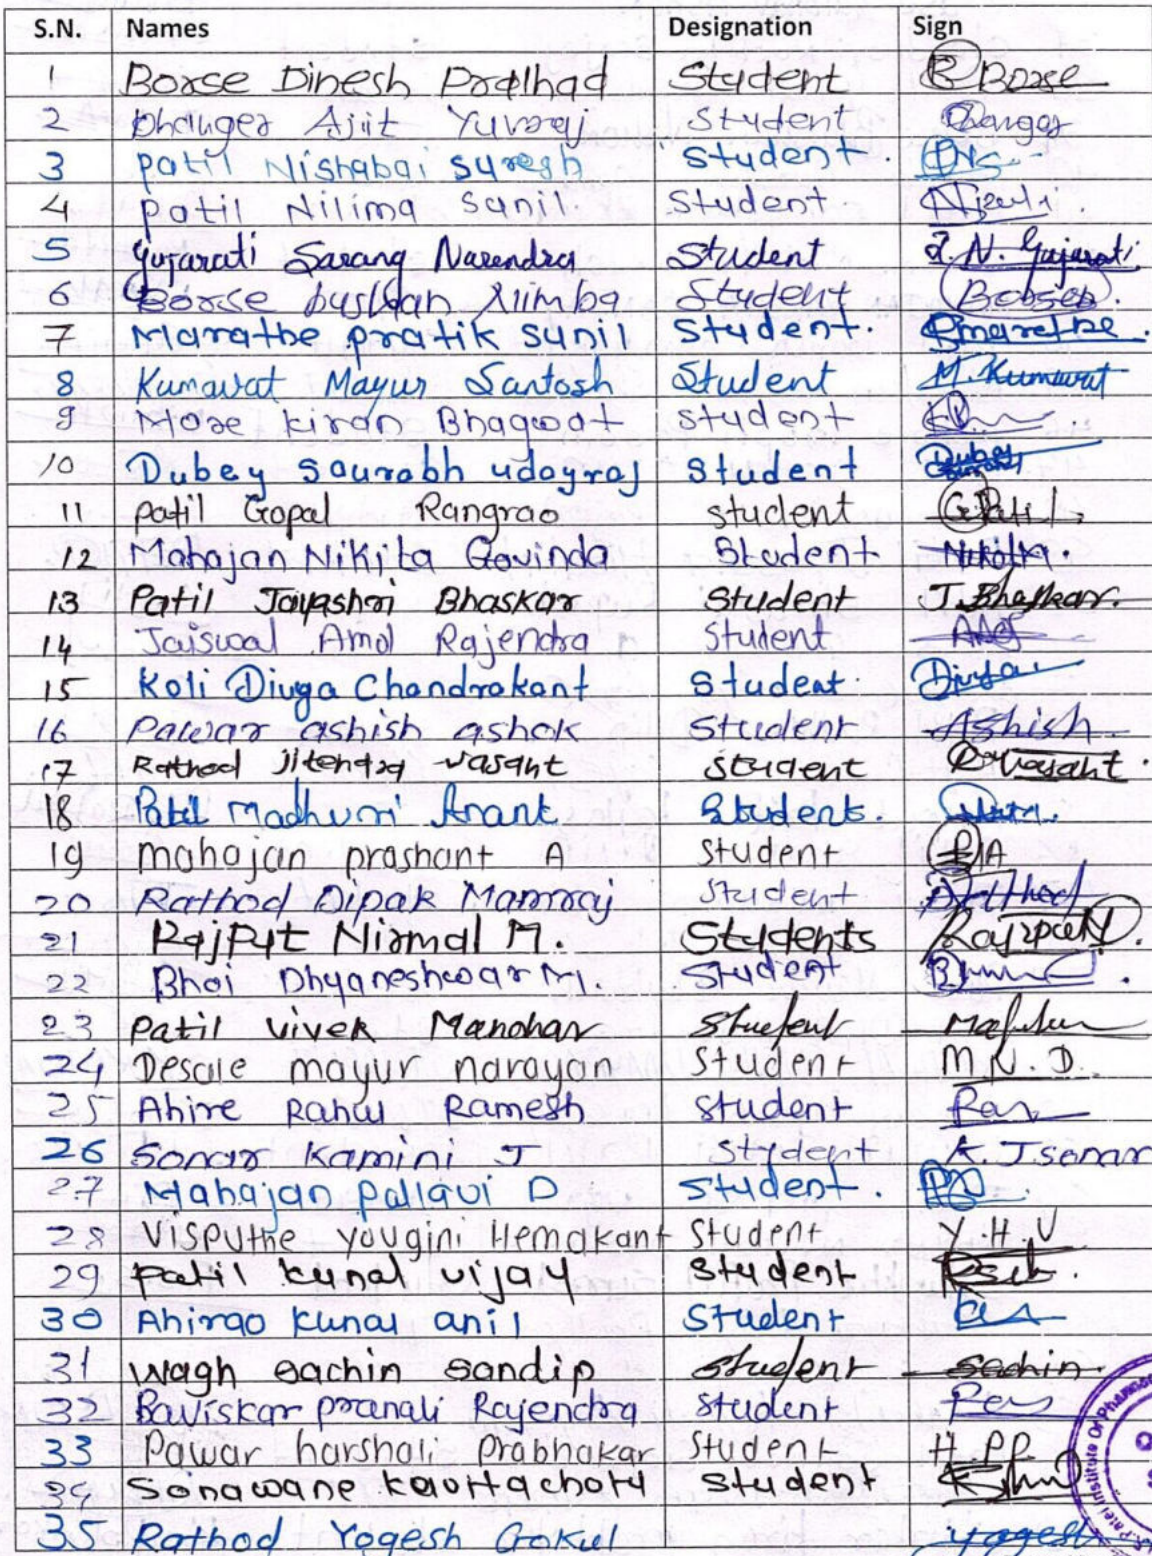 S.N. Names Designation Sign
1 Borse Dinesh Pralhad Student B Borse
2 Dhanger Ajit Yuvraj Student Dhanger
3 patil Nishabai suresh student.
4 patil Nilima sunil. Student
5 Gujarati Sarang Narendra Student S. N. Gujarati
6 Borse Student
7 Marathe pratik sunil Student. Pmarathe.
8 Kumawat Mayur Santosh Student M. Kumawat
9 More kiran Bhagwat student
10 Dubey Saurabh udayraj Student Dubey
11 patil Gopal Rangrao student G Patil
12 Mahajan Nikita Govinda Student Nikita.
13 Patil Jayashri Bhaskar Student J. Bhaskar.
14 Jaiswal Amol Rajendra Student
15 Koli Divya Chandrakant Student. Divya
16 Pawar ashish ashok Student Ashish
17 Rathod jitendra vasant Student R vasant.
18 Patil Madhuri Anant Student.
19 mahajan prashant A student P A
20 Rathod Dipak Mamraj Student D Rathod
21 Rajput Nirmal M. Students Rajput N.
22 Bhoi Dhyaneshwar M. Student
23 Patil vivek Manohar Student
24 Desale mayur narayan Student M. N. D.
25 Ahire Rahul Ramesh Student
26 Sonar Kamini J Student K. J sonar
27 Mahajan Pallavi D Student.
28 Visputhe yougini Hemakant Student Y. H. V
29 patil kunal vijay Student
30 Ahirao kunal anil Student
31 wagh sachin sandip Student Sachin.
32 Baviskar pranali Rajendra Student
33 Pawar harshali Prabhakar Student H. PP
34 Sonawane Student
35 Rathod Yogesh Gokul yogesh
Patel Institute Of